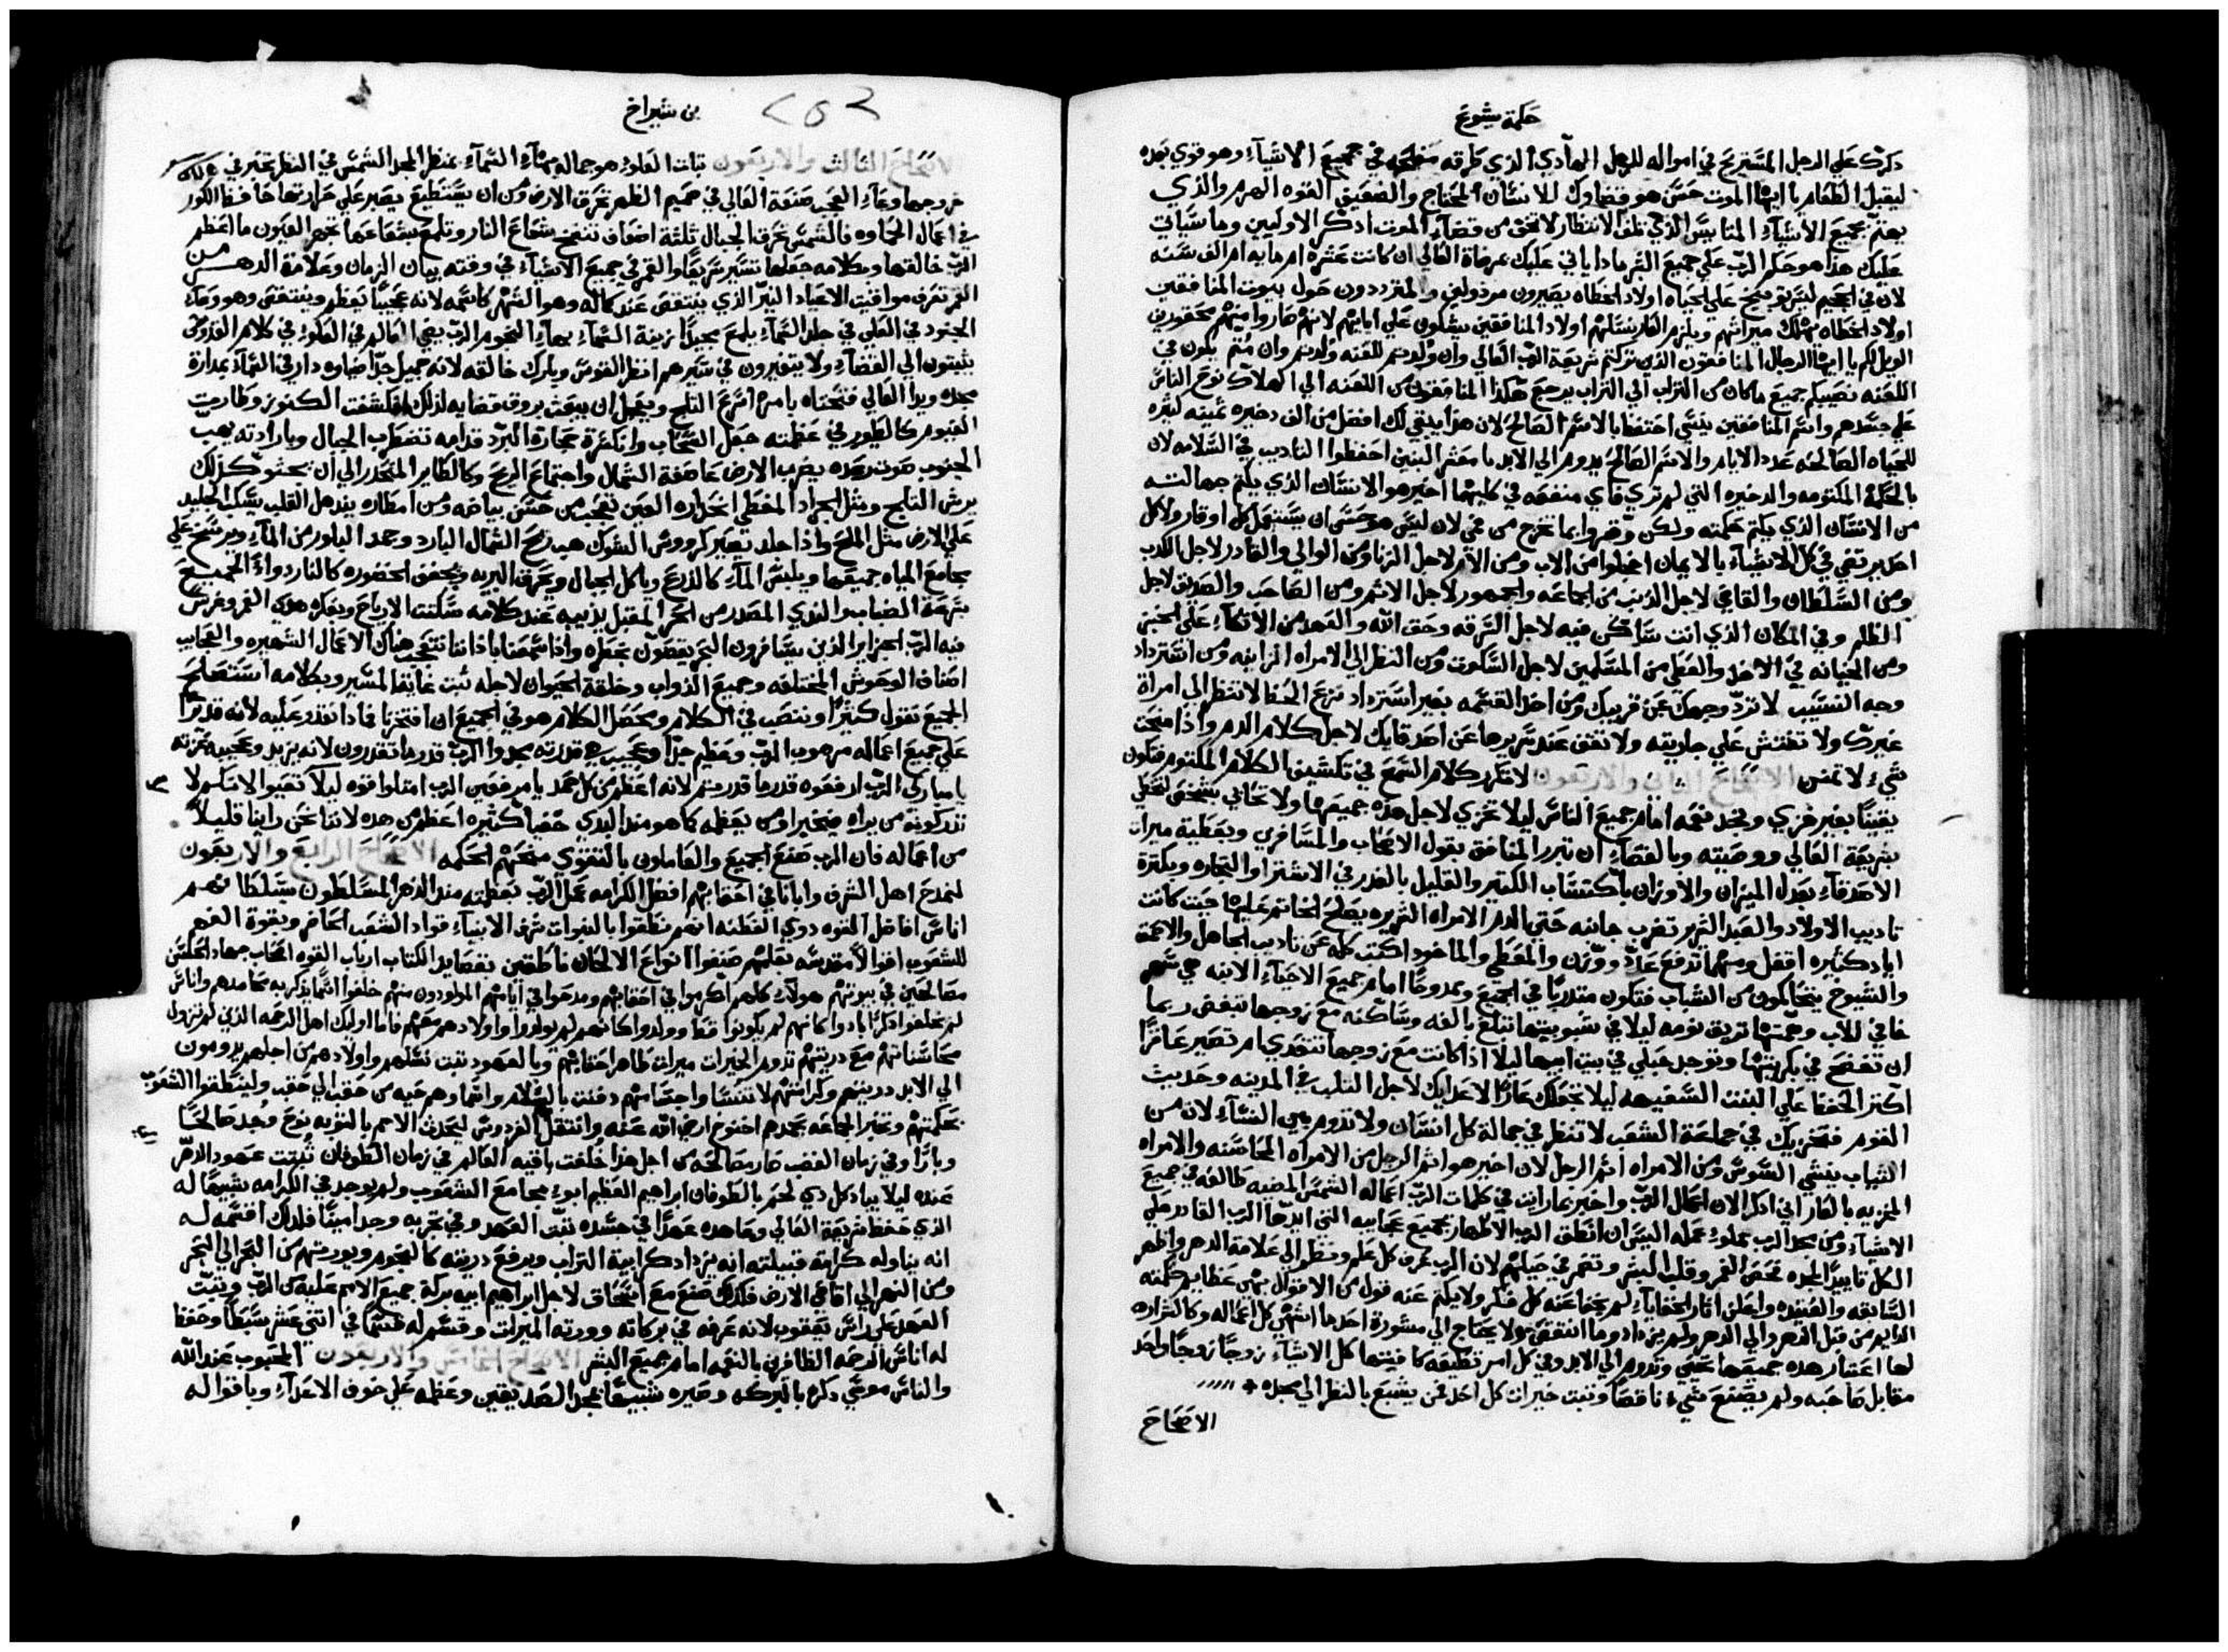 حكمة يشوع
ذكرك علي الرجل المستريح في امواله للرجل الهادي الذي طرقه منجحه في جميع الاشياء وهو قوي بعده
ليقبل الطعام يا ايها الموت حسن هو قضاوك للانسان المحتاج والضعيف القوه الهرم والذي
يهتم بجميع الاشياء المنايس الذي تلف الانتظار لا تخف من قضاء الموت اذكر الاوليين وما سياتي
عليك هذا هو حكم الرب علي جميع البشر ماذا ياتي عليك بمرضاة العالي ان كانت عشره ام مايه ام الف سنه
لان في الجحيم ليس توبيخ علي الحياه اولاد الخطاه يصيرون مرذولين والمترددون حول بيوت المنافقين
اولاد الخطاه يهلك ميراثهم ويلزم العار نسلهم اولاد المنافقين يشكون علي ابايهم لانهم صاروا منهم محقورين
الويل لكم يا ايها الرجال المنافقون الذين تركتم شريعة الرب العالي وان ولدتم للعنه ولدتم وان متم يكون في
اللعنه نصيبكم جميع ما كان من التراب الي التراب يرجع هكذا المنافقون من اللعنه الي الهلاك نوح الناس
علي جسدهم واسم المنافقين ينسي احتفظ بالاسم الصالح لان هذا يبقي لك افضل من الف دخيره ثمينه كثيره
للحياه الصالحه عدد الايام والاسم الصالح يدوم الي الابد يا معشر البنين احفظوا التاديب في السلامه لان
بالحكمة المكتومه والدخيره التي لم تري فاي منفعه في كليهما اخير هو الانسان الذي يكتم جهالته
من الانسان الذي يكتم حكمته ولكن وقروا بما يخرج من فمي لان ليس هو حسن ان يستعمل كل اوقار ولا كل
احد يرتضي في كل الاشياء بالايمان اخجلوا من الاب ومن الام لاجل الزنا ومن الوالي والقادر لاجل الكدب
ومن السلطان والقاضي لاجل الذنب من الجماعه والجمهور لاجل الاثم ومن الصاحب والصديق لاجل
الظلم وفي المكان الذي انت ساكن فيه لاجل السرقه وحق الله والعهد من الاتكاء علي الخبز
ومن الخيانه في الاخد والعطي من المسلمين لاجل السكوت ومن النظر الي الامراه الزانيه ومن استرداد
وجه النسيب لا تردّ وجهك عن قريبك ومن اخد القسمه بغير استرداد نزع الحظ لا تنظر الي امراة
غيرك ولا تفتش علي جاريته ولا تقف عند سريرها عن اصدقايك لاجل كلام الدم واذا منحت
شيء لا تمنن الاصحاح الثاني والاربعون لا تكرر كلام السمع في تكشيف الكلام المكتوم فتكون
يقيناً بغير خزي وتجد نعمه امام جميع الناس ليلا تخزي لاجل هذه جميعها ولا تحابي بشخص لتخطي
بشريعة العالي ووصيته وبالقضاء ان تبرر المنافق بقول الاصحاب والمسافرين وبعطية ميراث
الاصدقاء بعدل الميزان والاوزان باكتساب الكثير والقليل بالغدر في الاشترا والتجاره وبكثرة
تاديب الاولاد والعبد الشرير تضرب جانبه حتي الدم الامراه الشريره يصلح الخاتم عليها حيث كانت
اياد كثيره اقفل ومهما تدفع عدّ ووزن والمعطي والماخود اكتب كله عن تاديب الجاهل والاحمق
والشيوخ يتحاكمون من الشباب فتكون متدربا في الجميع وممدوحا امام جميع الاحياء الابنه هي سهر
خافي للاب وهمتها تزيق نومه ليلا في شبوبيتها تبلغ بالغه وساكنه مع زوجها تبغض ربما
ان تفضح في بكوريتها وتوجد حبلي في بيت ابيها ليلا اذا كانت مع زوجها تتعدي ام تصير عاقرا
اكثر الحفظ علي البنت السفيهه ليلا تجعلك عارا لاعدايك لاجل الثلب في المدينه وحديث
القوم فتخزيك في جماعة الشعب لا تنظر في جمالة كل انسان ولا تدوم بين النساء لان من
الثياب ينشي السوس ومن الامراه اثم الرجل لان اخير هو اثم الرجل من الامراه المحاسنه والامراه
المخزيه بالعار اني اذكر الان اعمال الرب واخبر بما رايت في كلمات الرب اعماله الشمس المضيه طالعه في جميع
الاشياء ومن مجد الرب مملوء عمله اليس ان انطق الرب الاطهار بجميع عجايبه التي ايدها الرب القادر علي
الكل تاييدا لمجده تفحص الغمر وقلب البشر وتفكر في حيلهم لان الرب عرف كل علم ونظر الي علامة الدهر واظهر
السابقه والعتيده واعلن اثار الخفايا لم يخفا عنه كل فكر ولا يكتم عنه قول من الاقوال بهي عظايم حكمته
الدايم من قبل الدهر والي الدهر ولم يزداد وما انتقص ولا يحتاج الي مشورة احد ما اشهي كل اعماله وكالشراره
لها اعتبار هذه جميعها تحيي وتدوم الي الابد وفي كل امر تطيعه كافيتها كل الاشياء زوجا زوجا واحد
مقابل صاحبه ولم يصنع شيء ناقصا وثبت خيرات كل احد فمن يشبع بالنظر الي مجده
الاصحاح
بن شيراخ
الاصحاح الثالث والاربعون ثبات العلوء هو جماله بهاء السماء عنظر المجد الشمس في النظر تخبر في
خروجها وعاء العجب صنعة العالي في صميم الظهر تحرق الارض ومن ان يستطيع يصبر علي حرارتها حافظ الكور
في اعمال الحماوه فالشمس تحرق الجبال ثلثة اضعاف تنفخ شعاع النار وتلمع بشعاعها تجهر العيون ما اعظم
الرب خالقها وبكلامه جعلها تسير سريعا والقمر في جميع الاشياء في وقته بيان الزمان وعلامة الدهر من
القمر تعرف مواقيت الاعياد النيّر الذي ينتقص عند كماله وهو الشهر كاسمه لانه عجيبا يعظم وينتقص وهو وعاء
الجنود في العلي في جلد السماء يلمع مجيدا زينة السماء بهاء النجوم الرب يضي العالم في العلوء في كلام القدوس
يثبتون الي القضاء ولا يتغيرون في سيرهم انظر القوس وبارك خالقه لانه جميل جدا ضياوه دار في السماء بمدارة
مجده ويدا العالي فتحتاه بامره اسرع الثلج ويعجل ان يبعث بروق قضايه لذلك انكشفت الكنوز وطارت
الغيوم كالطيور في عظمته جعل السحاب وانكسرة حجارة البرد قدامه تضطرب الجبال وبارادته يهب
الجنوب صوت رعده يضرب الارض عاصفة الشمال واجتماع الريح وكالطاير المنحدر الي ان يجتو كذلك
يرش الثلج ومثل الجراد المغطي انحداره العين تعجب من حسن بياضه ومن امطاره يندهل القلب يسكب الجليد
علي الارض مثل الملح واذا جلد تصير كرووس الشوك هبت ريح الشمال البارد وجمد البلور من الماء ويرسخ علي
مجامع المياه جميعها ويلبس الماء كالدرع وياكل الجبال ويحرق البريه ويخفق الخضوره كالنار دواء الجميع
بسرعة الضباب والندي المصدر من الحر المقبل يذيبه عند كلامه سكتت الارياح وبفكره هدي الغمر وغرس
فيه الرب الجزاير الذين يسافرون البحر يقصون بخطره واذا سمعنا باذاننا نتعجب هناك الاعمال الشهيره والعجايب
اصناف الوحوش المختلفه وجميع الدواب وخلقة الحيوان لاجله ثبت غاية المسير وبكلامه استصلح
الجميع نقول كثيرا وننصب في الكلام ومحصل الكلام هو في الجميع ان افتخرنا فماذا نقدر عليه لانه قدير
علي جميع اعماله مرهوب الرب وعظيم جدا وعجيب هي قدرته مجدوا الرب قدر ما تقدرون لانه يزيد وعجيبه عزته
يا مباركي الرب ارفعوه قدر ما قدرتم لانه اعظم من كل حمد يا مرفعين الرب امتلوا قوه ليلا تتعبوا لانكم لا
تدركونه من يراه فيخبر او من يعظمه كما هو مند البدي خفيا كثيره اعظم من هده لاننا نحن راينا قليلا
من اعماله فان الرب صنع الجميع والعاملون بالتقوي منحهم الحكمه الاصحاح الرابع والاربعون
لنمدح اهل الشرف واباءنا في احقابهم افضل الكرامه عمل الرب بعظمته مند الدهر المسلطون بسلطانهم
اناس افاضل القوه دوي الفطنه انهم نطقوا بالنبوات شرف الانبياء قواد الشعب الحاضر وبقوة الفهم
للشعوب اقوالا مقدسه بعلمهم صنفوا انواع الالحان ناطقين بقصايد الكتاب ارباب القوه اصحاب جهاد الحسن
مصالحين في بيوتهم هولاء كلهم اكرموا في احقابهم ومدحوا في ايامهم المولودون منهم خلفوا اسما يذكر به محامدهم واناس
لم يخلفوا ذكرا بادوا كانهم لم يكونوا قط وولدوا كانهم لم يولدوا واولادهم معهم فاما اوليك اهل الرحمه الذين لم تزول
محاسناتهم مع دريتهم تدوم الخيرات ميراث طاهر احقابهم وبالعهود ثبت نسلهم واولادهم من اجلهم يدومون
الي الابد دريتهم وكرامتهم لا تنسا واجسامهم دفنت بالسلام واسماوهم حيه من حقب الي حقب ولينطقوا الشعوب
بحكمتهم وتخبر الجماعه بمجدهم اخنوخ ارضي الله عنه وانتقل الي الفردوس ليحدث الامم بالتوبه نوح وجد صالحا
وبارا وفي زمان الغضب صار مصالحه من اجل هذا خلفت باقيه العالم في زمان الطوفان ثبتت عهود الدهر
عنده ليلا يباد كل دي لحم بالطوفان ابراهيم العظيم ابوء مجامع الشعوب ولم يوجد في الكرامه شبيها له
الذي حفظ شريعة العالي وعاهده عهدا في جسده ثبت العهد وفي تجربه وجد امينا فلدلك اقسم له
انه يناوله كرامة قبيلته انه يزداد كرابية التراب ويرفع دريته كالنجوم ويورثهم من البحر الي البحر
ومن النهر الي اقاصي الارض فكدلك صنع مع اسحاق لاجل ابراهيم ابيه بركة جميع الامم عليه من الرب وثبت
العهد علي راس يعقوب لانه عرفه في بركاته وورثه الميراث وقسم له قسما في اثني عشر سبطا وحفظ
له اناس الرحمه الظافرين بالنعمه امام جميع البشر الاصحاح الخامس والاربعون المحبوب عند الله
والناس موسي ذكره بالبركه وصيره شبيها بمجد الصديقين وعظمه علي خوف الاعداء وباقواله